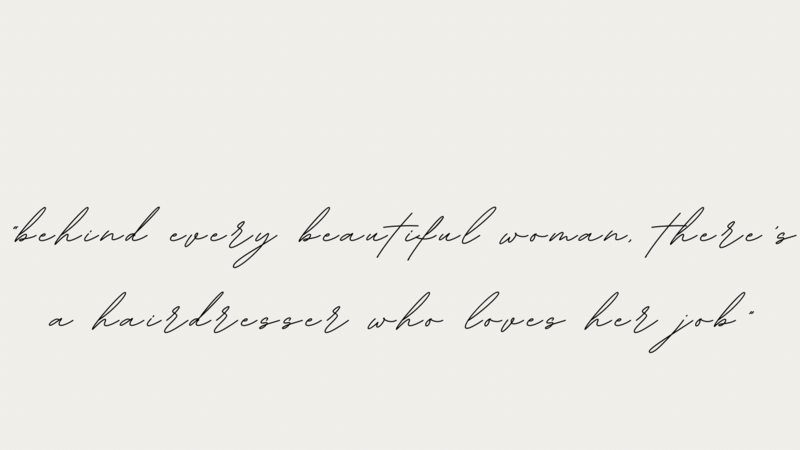 "behind every beautiful woman, there's
a hairdresser who loves her job"